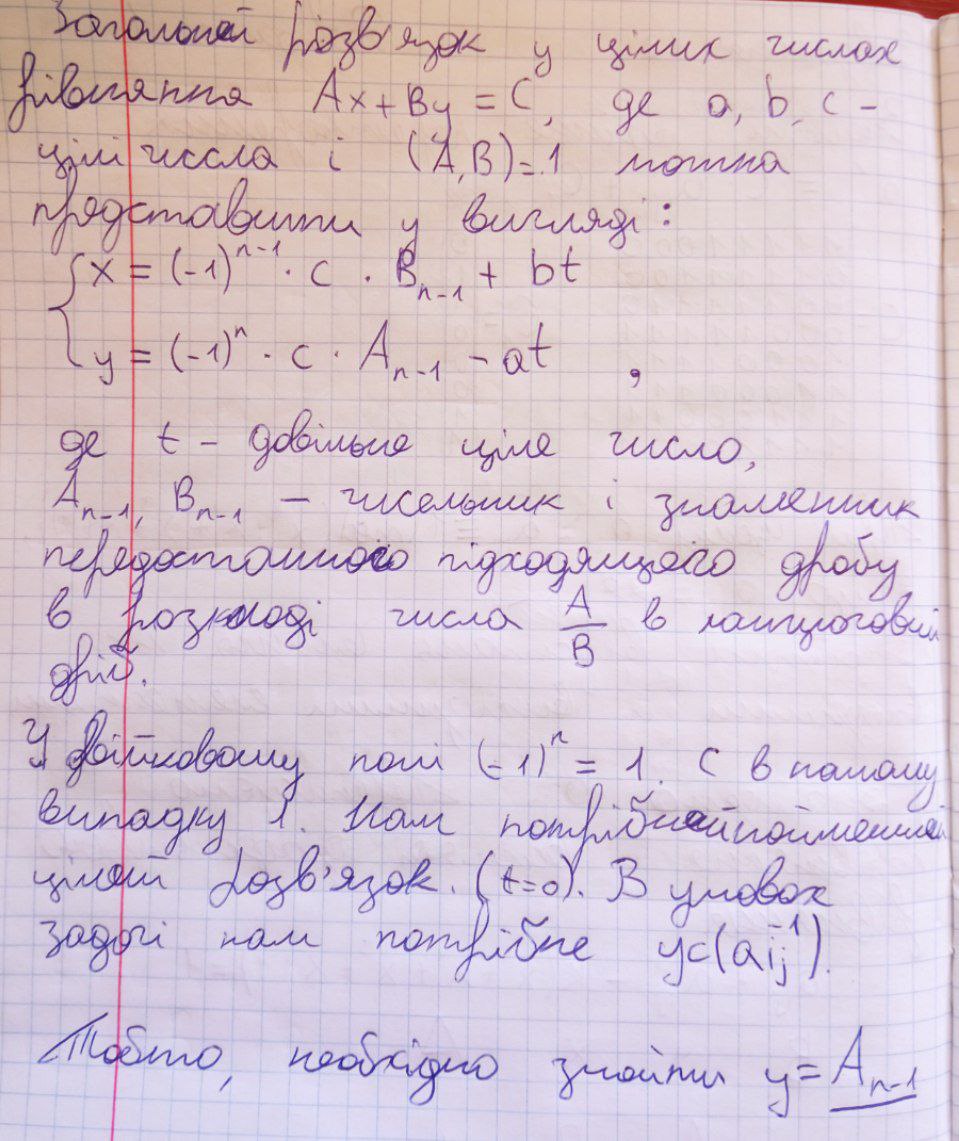 Загальний розв'язок у цілих числах
рівняння Ax + By = C, де a, b, c –
цілі числа і (A, B) = 1 можна
представити у вигляді:
{ x = (-1)^{n-1} · c · B_{n-1} + bt
y = (-1)^n · c · A_{n-1} - at ,
де t – довільне ціле число,
A_{n-1}, B_{n-1} – чисельник і знаменник
передостаннього підходящого дробу
в розкладі числа A/B в ланцюговий
дріб.
У двійковому полі (-1)^n = 1. C в нашому
випадку 1. Нам потрібен найменший
цілий розв'язок. (t=0). В умовах
задачі нам потрібне
Тобто, необхідно знайти y = A_{n-1}